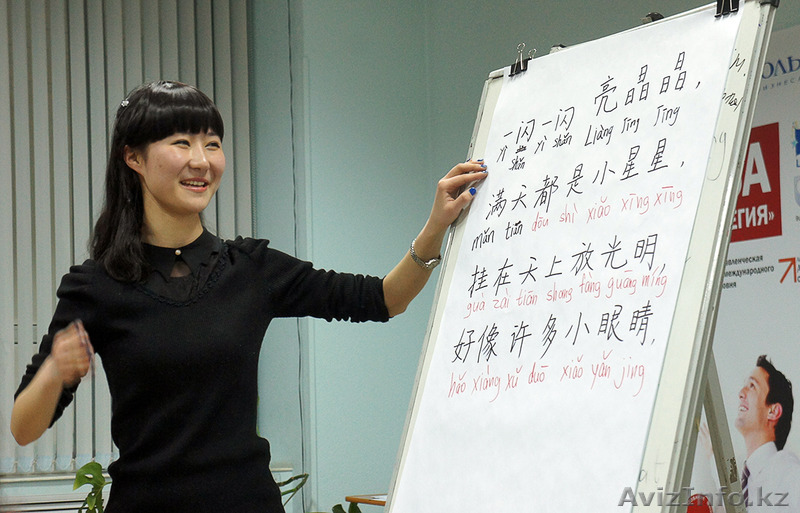 一闪一闪 亮晶晶,
yì shǎn yì shǎn Liàng Jīng Jīng
满天都是小星星,
mǎn tiān dōu shì xiǎo xīng xīng
挂在天上放光明,
guà zài tiān shang fàng guāng míng
好像许多小眼睛,
hǎo xiàng xǔ duō xiǎo yǎn jing
ОЛЬ
БИЗНЕС
А
ЕГИЯ»
вленческая
международного
овня
AvizInfo.kz